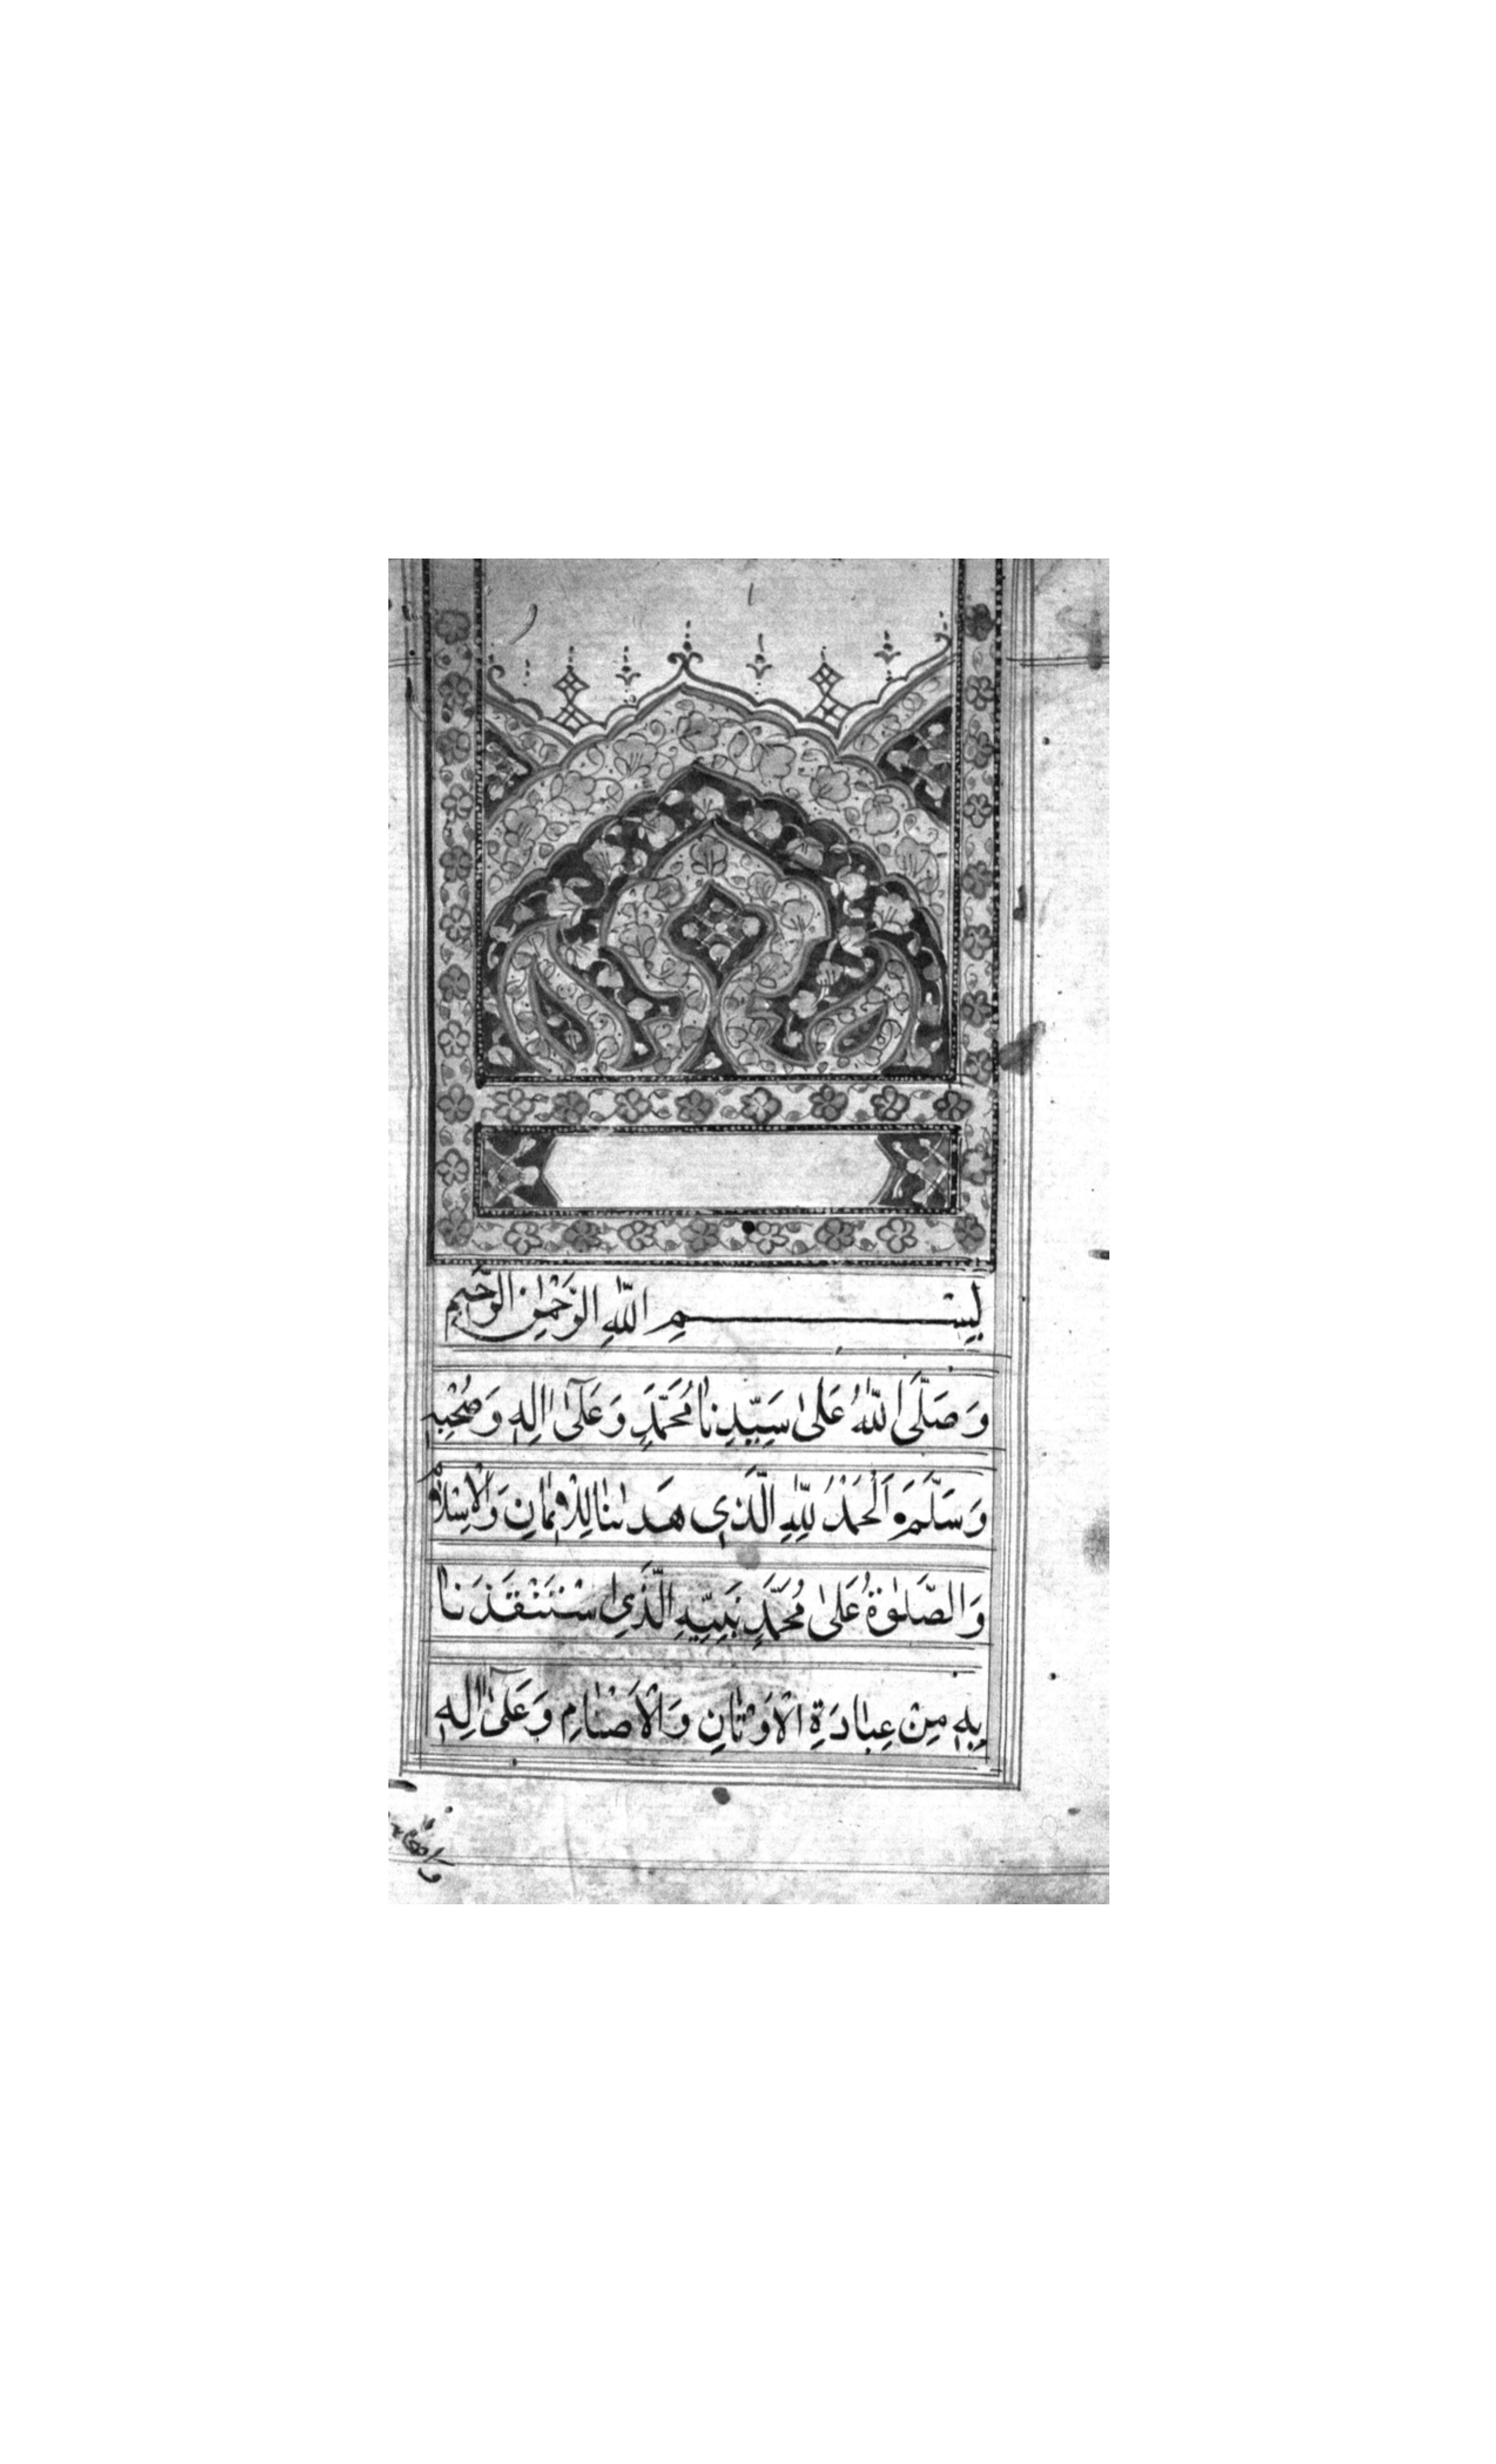 بِسْمِ اللّٰهِ الرَّحْمٰنِ الرَّحِيْمِ
وَصَلَّى اللّٰهُ عَلٰى سَيِّدِنَا مُحَمَّدٍ وَعَلٰٓى اٰلِهٖ وَصَحْبِهٖ
وَسَلَّمَ اَلْحَمْدُ لِلّٰهِ الَّذِي هَدٰىنَا لِلْاِيْمَانِ وَالْاِسْلَامِ
وَالصَّلٰوةُ عَلٰى مُحَمَّدٍ نَبِيِّهِ الَّذِى اسْتَنْقَذَنَا
بِهٖ مِنْ عِبَادَةِ الْاَوْثَانِ وَالْاَصْنَامِ وَعَلٰٓى اٰلِهٖ